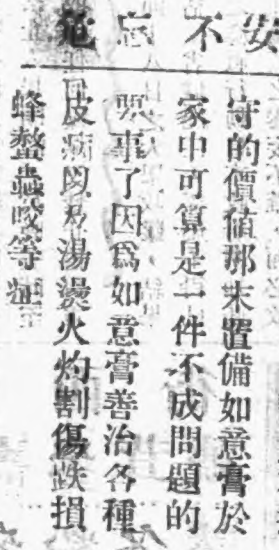 安不忘危
守的價値那末置備如意膏於
家中可算是一件不成問題的
事了因爲如意膏善治各種
皮病以及湯燙火灼割傷跌損
蜂螫蟲咬等症